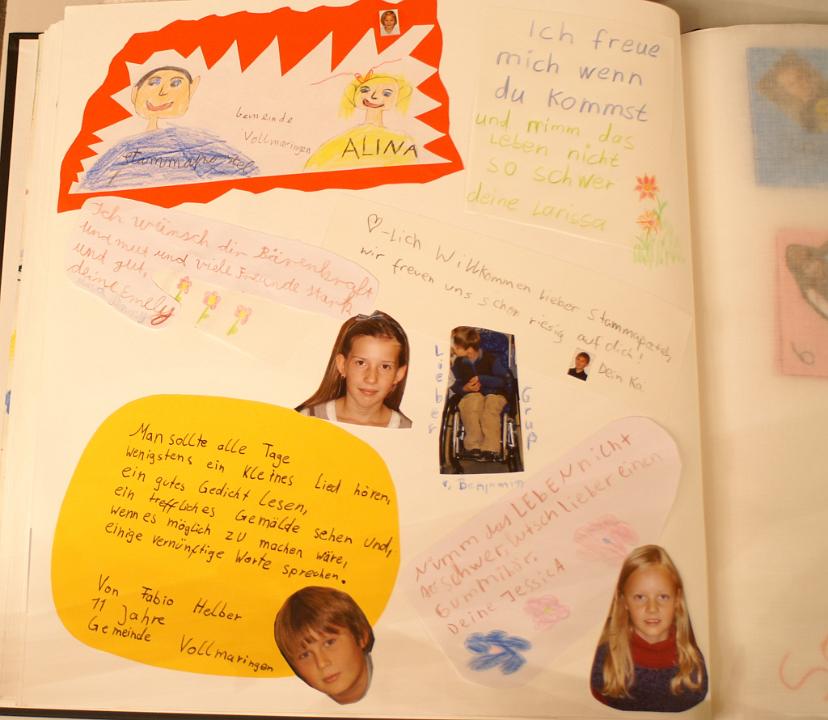 Stammapostel
Gemeinde
Vollmaringen
ALINA
Ich freue
mich wenn
du kommst
und mimm das
Leben nicht
so schwer
deine Larissa
Ich wünsch dir Bärenkraft
und mut und viele Freunde stark
und gut.
deine Emely
♡-lich Willkommen lieber Stammapostel,
wir freuen uns schon riesig auf dich!
Dein Ka
Lieber
Gruß
v. Benjamin
Man sollte alle Tage
wenigstens ein kleines Lied hören,
ein gutes Gedicht Lesen,
ein treffliches Gemälde sehen und,
wenn es möglich zu machen wäre,
einige vernünftige Worte sprechen.
Von Fabio Helber
11 Jahre
Gemeinde Vollmaringen
Nimm das LEBEN nicht
so schwer, lutsch lieber einen
Gummibär.
Deine Jessica